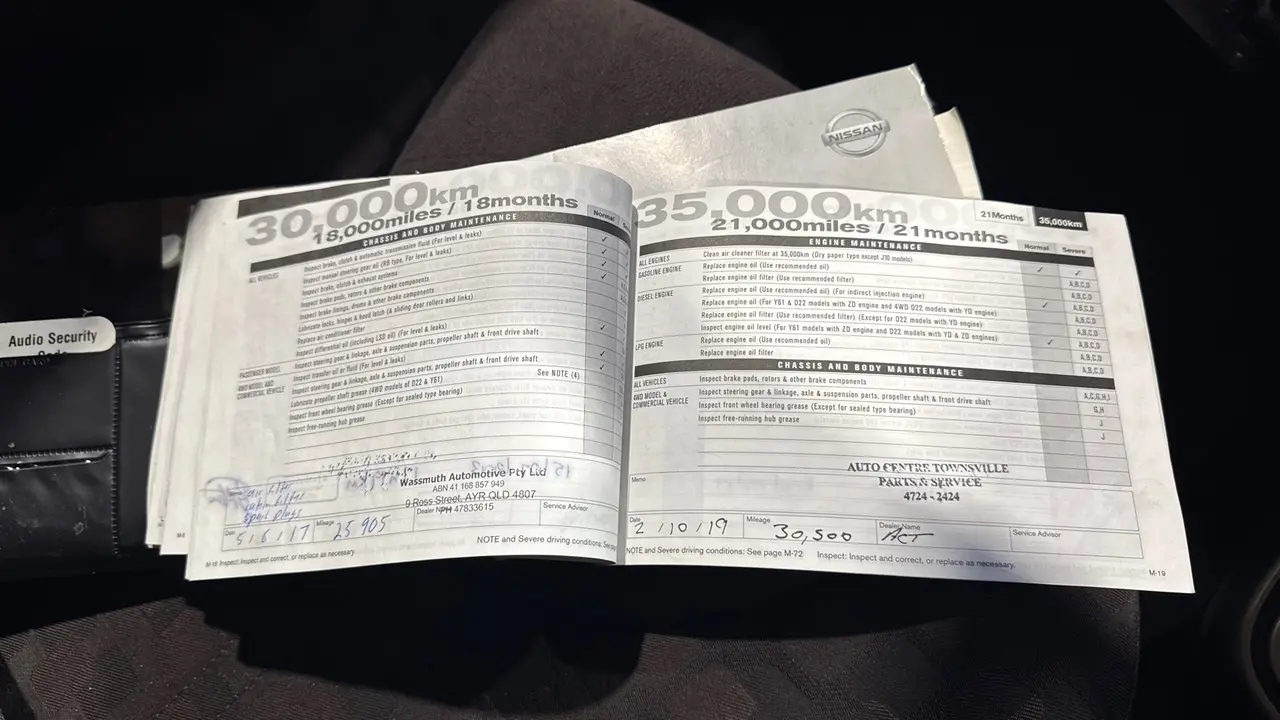 NISSAN
Audio Security
Code
30,000km
18,000miles / 18months
Normal
CHASSIS AND BODY MAINTENANCE
ALL VEHICLES
Inspect brake, clutch & automatic transmission fluid (For level & leaks)
Inspect manual steering gear oil (RB type, For level & leaks)
Inspect brake, clutch & exhaust systems
Inspect brake pads, rotors & other brake components
Inspect brake linings, drums & other brake components
Lubricate locks, hinges & hood latch (& sliding door rollers and links)
Replace air conditioner filter
Inspect differential oil (including LSD oil) (For level & leaks)
PASSENGER MODEL
Inspect steering gear & linkage, axle & suspension parts, propeller shaft & front drive shaft
4WD MODEL AND
COMMERCIAL VEHICLE
Inspect transfer oil or fluid (For level & leaks)
Inspect steering gear & linkage, axle & suspension parts, propeller shaft & front drive shaft
Lubricate propeller shaft grease (4WD models of D22 & Y61)
See NOTE (4)
Inspect front wheel bearing grease (Except for sealed type bearing)
Inspect free-running hub grease
Wassmuth Automotive Pty Ltd
ABN 41 168 857 949
9 Ross Street, AYR QLD 4807
PH 47833615
Spark plugs
Date
5/6/17
Mileage
25905
Dealer
Service Advisor
NOTE and Severe driving conditions: See
M-18 Inspect: Inspect and correct, or replace as necessary.
35,000km
21,000miles / 21months
21Months
35,000km
ENGINE MAINTENANCE
Normal
Severe
ALL ENGINES
Clean air cleaner filter at 35,000km (Dry paper type except J10 models)
GASOLINE ENGINE
Replace engine oil (Use recommended oil)
A,B,C,D
Replace engine oil filter (Use recommended filter)
A,B,C,D
DIESEL ENGINE
Replace engine oil (Use recommended oil) (For indirect injection engine)
A,B,C,D
Replace engine oil (For Y61 & D22 models with ZD engine and 4WD D22 models with YD engine)
A,B,C,D
Replace engine oil filter (Use recommended filter) (Except for D22 models with YD engine)
A,B,C,D
Inspect engine oil level (For Y61 models with ZD engine and D22 models with YD & ZD engines)
LPG ENGINE
Replace engine oil (Use recommended oil)
A,B,C,D
Replace engine oil filter
A,B,C,D
CHASSIS AND BODY MAINTENANCE
ALL VEHICLES
Inspect brake pads, rotors & other brake components
A,C,G,H,I
4WD MODEL &
COMMERCIAL VEHICLE
Inspect steering gear & linkage, axle & suspension parts, propeller shaft & front drive shaft
G,H
Inspect front wheel bearing grease (Except for sealed type bearing)
J
Inspect free-running hub grease
J
AUTO CENTRE TOWNSVILLE
PARTS & SERVICE
4724 - 2424
Memo
Date
2/10/19
Mileage
30,500
Dealer Name
ACT
Service Advisor
NOTE and Severe driving conditions: See page M-72
Inspect: Inspect and correct, or replace as necessary.
M-19